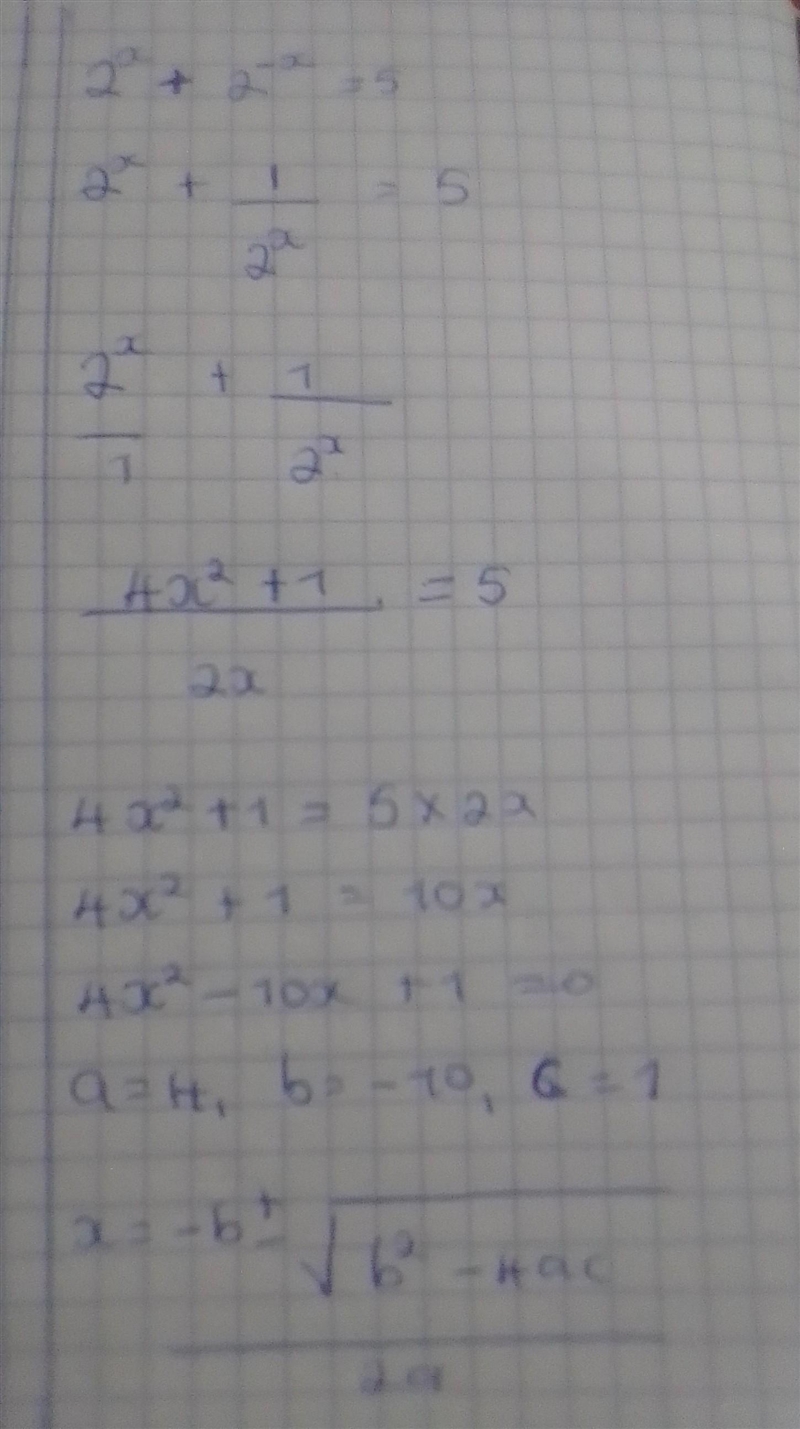 2^x + 2^-x = 5
2^x + 1/2^x = 5
2^x/1 + 1/2^x
4x² + 1 / 2x = 5
4x² + 1 = 5 × 2x
4x² + 1 = 10x
4x² - 10x + 1 = 0
a = 4, b = -10, C = 1
x = -b ± √b² - 4ac / 2a